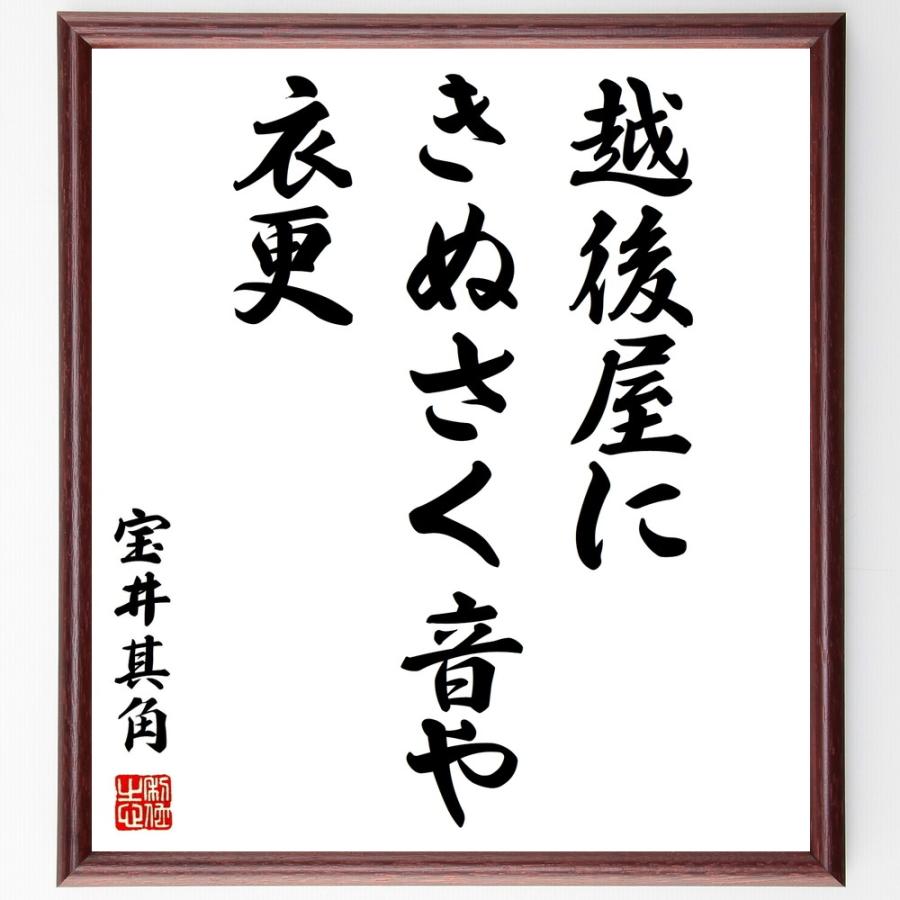 越後屋に
きぬさく音や
衣更
宝井其角